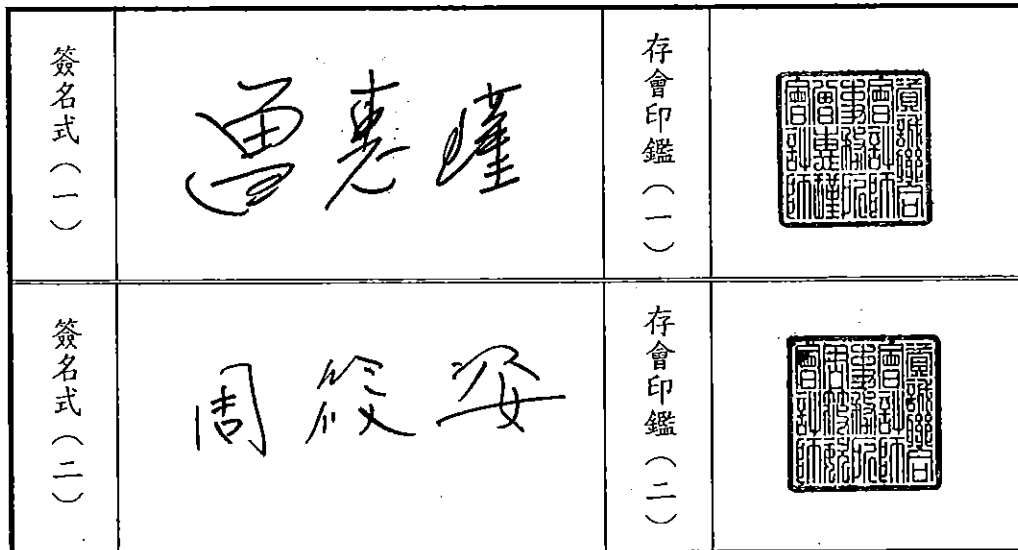 簽名式(一)
曾惠瑾
存會印鑑(一)
資誠聯合
會計師
事務所
曾惠瑾
會計師
簽名式(二)
周筱姿
存會印鑑(二)
資誠聯合
會計師
事務所
周筱姿
會計師